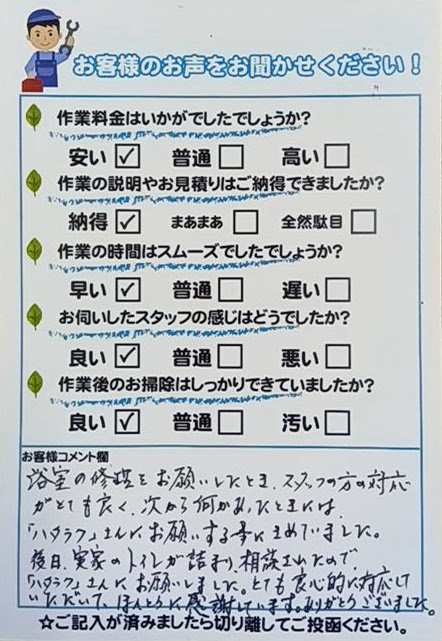 お客様のお声をお聞かせください！
作業料金はいかがでしたでしょうか?
安い ☑ 普通 □ 高い □
作業の説明やお見積りはご納得できましたか?
納得 ☑ まあまあ □ 全然駄目 □
作業の時間はスムーズでしたでしょうか?
早い ☑ 普通 □ 遅い □
お伺いしたスタッフの感じはどうでしたか?
良い ☑ 普通 □ 悪い □
作業後のお掃除はしっかりできていましたか?
良い ☑ 普通 □ 汚い □
お客様コメント欄
浴室の修理をお願いしたとき、スタッフの方の対応
がとても良く、次から何かあったときには、
「ハタラク」さんにお願いする事にきめていました。
後日、実家のトイレが詰まり、相談されたので
「ハタラク」さんにお願いしました。とても良心的に対応して
いただいて、ほんとうに感謝しています。ありがとうございました。
☆ご記入が済みましたら切り離してご投函ください。